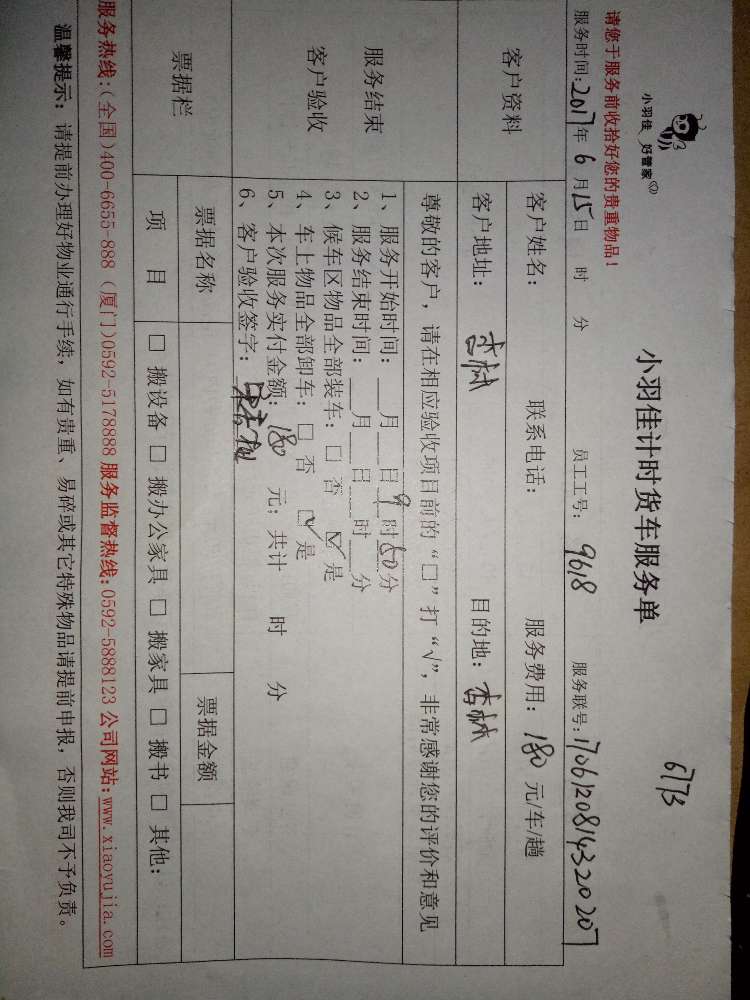 小羽佳 好管家
6773
小羽佳计时货车服务单
请您于服务前收拾好您的贵重物品！
服务时间：2017年 6 月 15 日 时 分 员工工号： 9618 服务联号：
客户资料
客户姓名： 联系电话： 服务费用： 180 元/车/趟
客户地址： 杏林 目的地： 杏林
服务结束
客户验收
尊敬的客户，请在相应验收项目前的“□”打“√”，非常感谢您的评价和意见
1、服务开始时间：___月___日 9 时 分
2、服务结束时间：___月___日___时___分
3、候车区物品全部装车：□ 否 ☑ 是
4、车上物品全部卸车：□ 否 ☑ 是
5、本次服务实付金额：180 元；共计 时 分
6、客户验收签字：
票据栏
票据名称 票据金额
项 目 □ 搬设备 □ 搬办公家具 □ 搬家具 □ 搬书 □ 其他：
服务热线：（全国）400-6655-888 （厦门）0592-5178888 服务监督热线：0592-5888123 公司网站：www.xiaoyujia.com
温馨提示：请提前办理好物业通行手续，如有贵重、易碎或其它特殊物品请提前申报，否则我司不予负责。